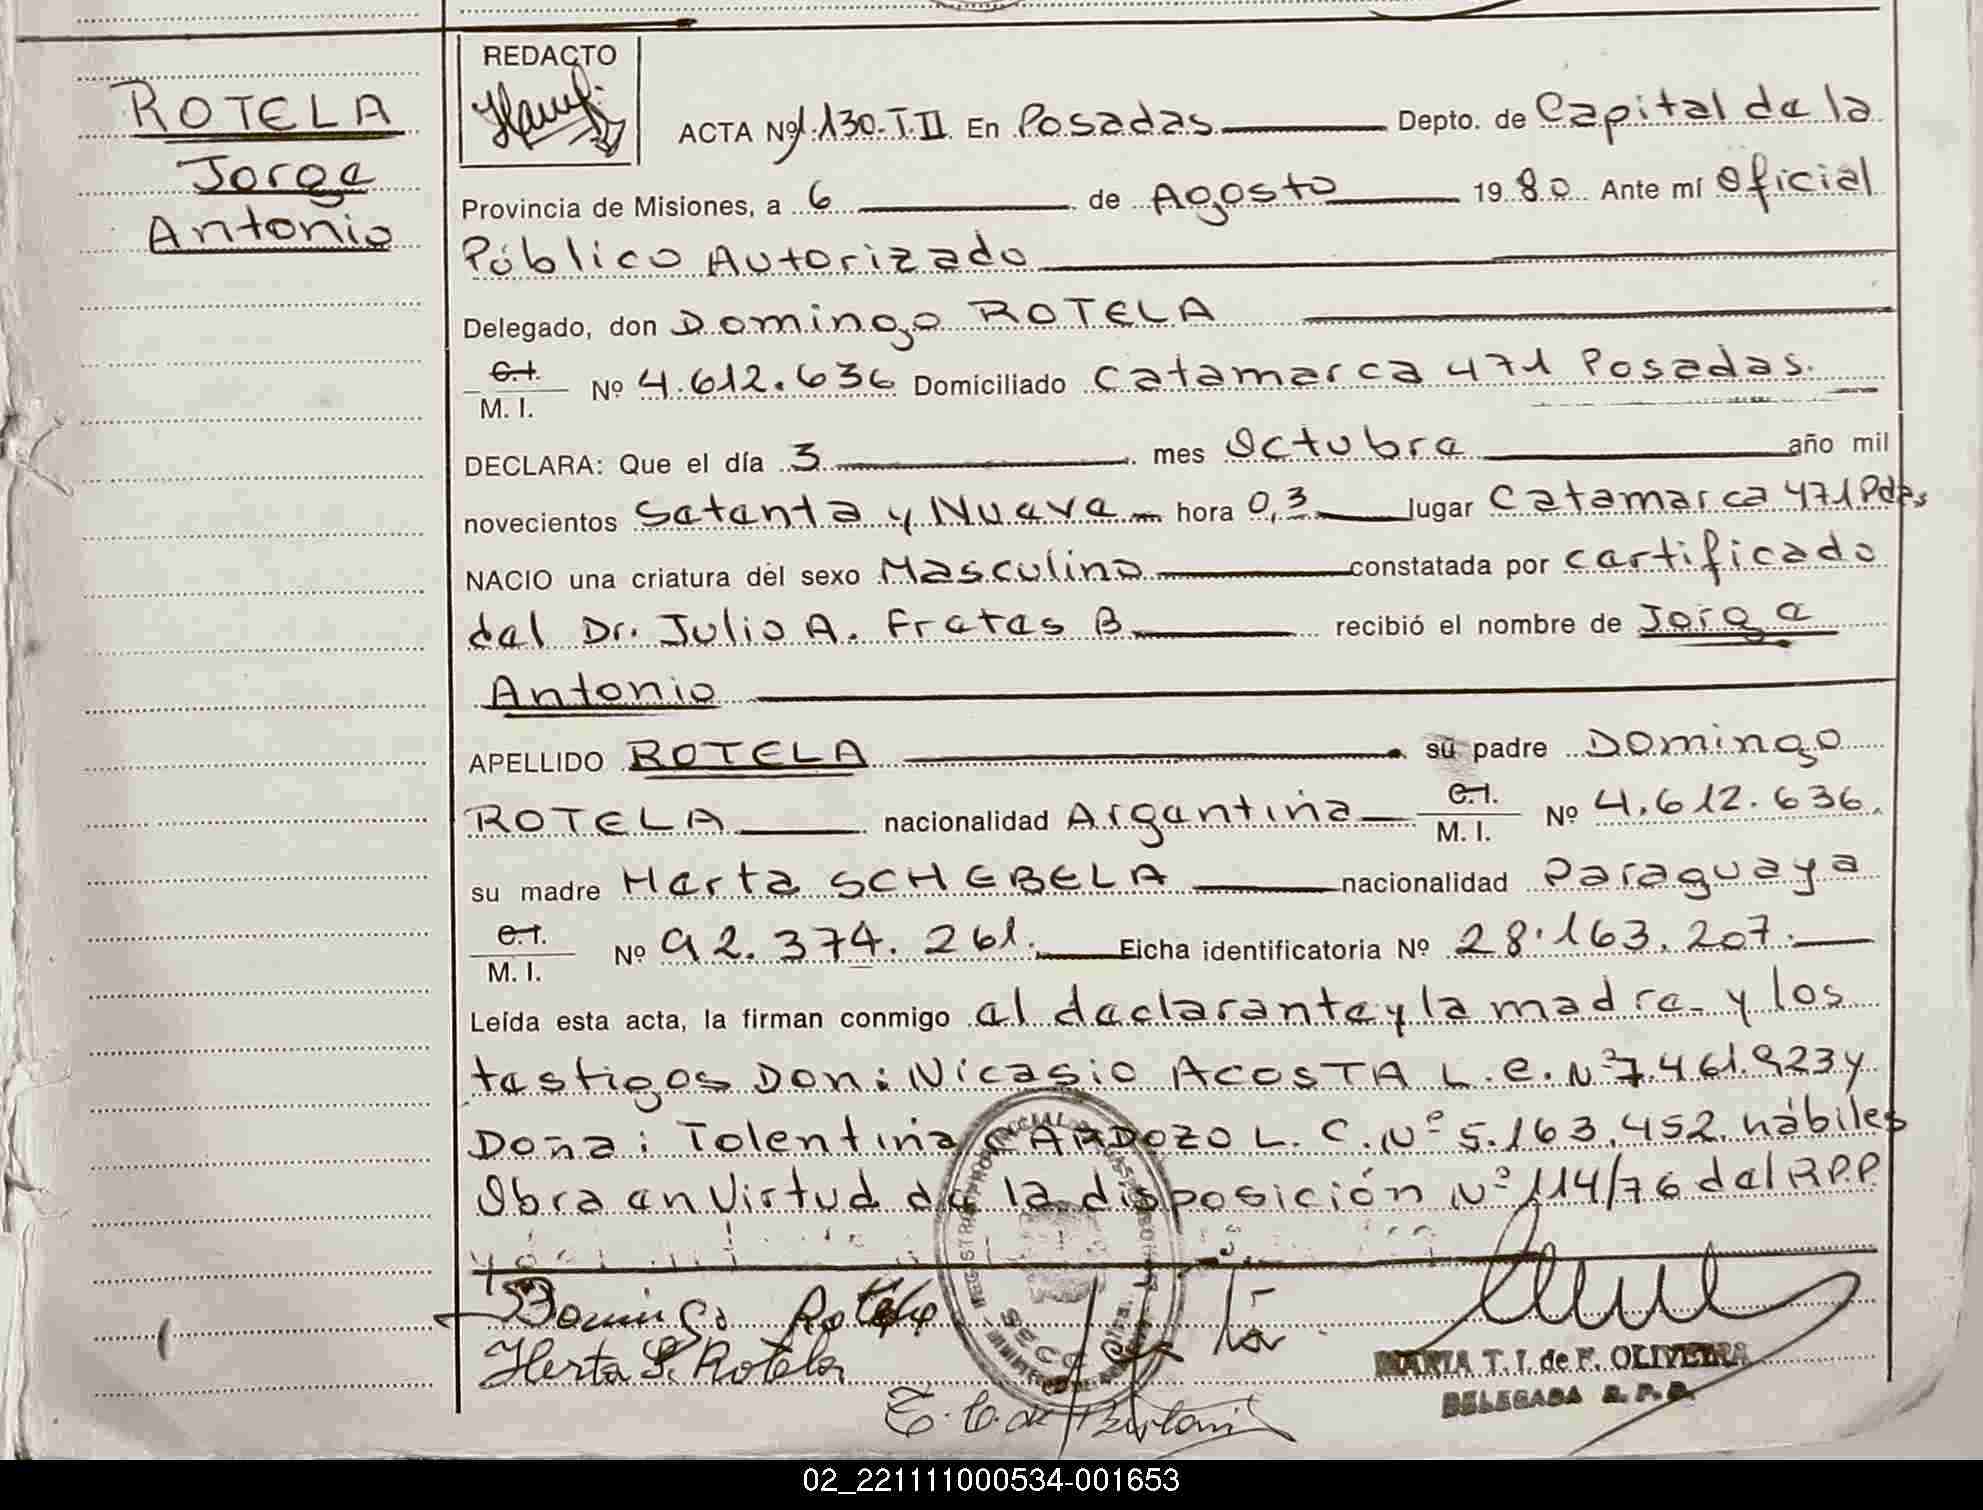 ROTELA
Jorge
Antonio
REDACTO
ACTA Nº 1.130-T.II En Posadas Depto. de Capital de la
Provincia de Misiones, a 6 de Agosto 1980 Ante mí Oficial
Público Autorizado
Delegado, don Domingo ROTELA
C.I.
M. I. Nº 4.612.636 Domiciliado Catamarca 471 Posadas.
DECLARA: Que el día 3 mes Octubre año mil
novecientos Setenta y Nueve hora 0,3 lugar Catamarca 471 Pdas
NACIO una criatura del sexo Masculino constatada por certificado
del Dr. Julio A. Fretes B recibió el nombre de Jorge
Antonio
APELLIDO ROTELA su padre Domingo
ROTELA nacionalidad Argentina C.I. M. I. Nº 4.612.636.
su madre Herta SCHEBELA nacionalidad Paraguaya
C.I.
M. I. Nº 92.374.261. Ficha identificatoria Nº 28.163.207.
Leída esta acta, la firman conmigo el declarante y la madre y los
testigos Don: Nicasio ACOSTA L.E. Nº 7.461.923 y
Doña: Tolentina CARDOZO L.C. Nº 5.163.452. hábiles
Obra en Virtud de la disposición Nº 114/76 del R.P.P.
Domingo Rotela
Herta S. Rotela
MARIA T. I. de F. OLIVEIRA
DELEGADA R. P. P.
02_221111000534-001653